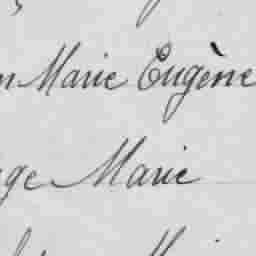 n Marie Eugène
ge Marie